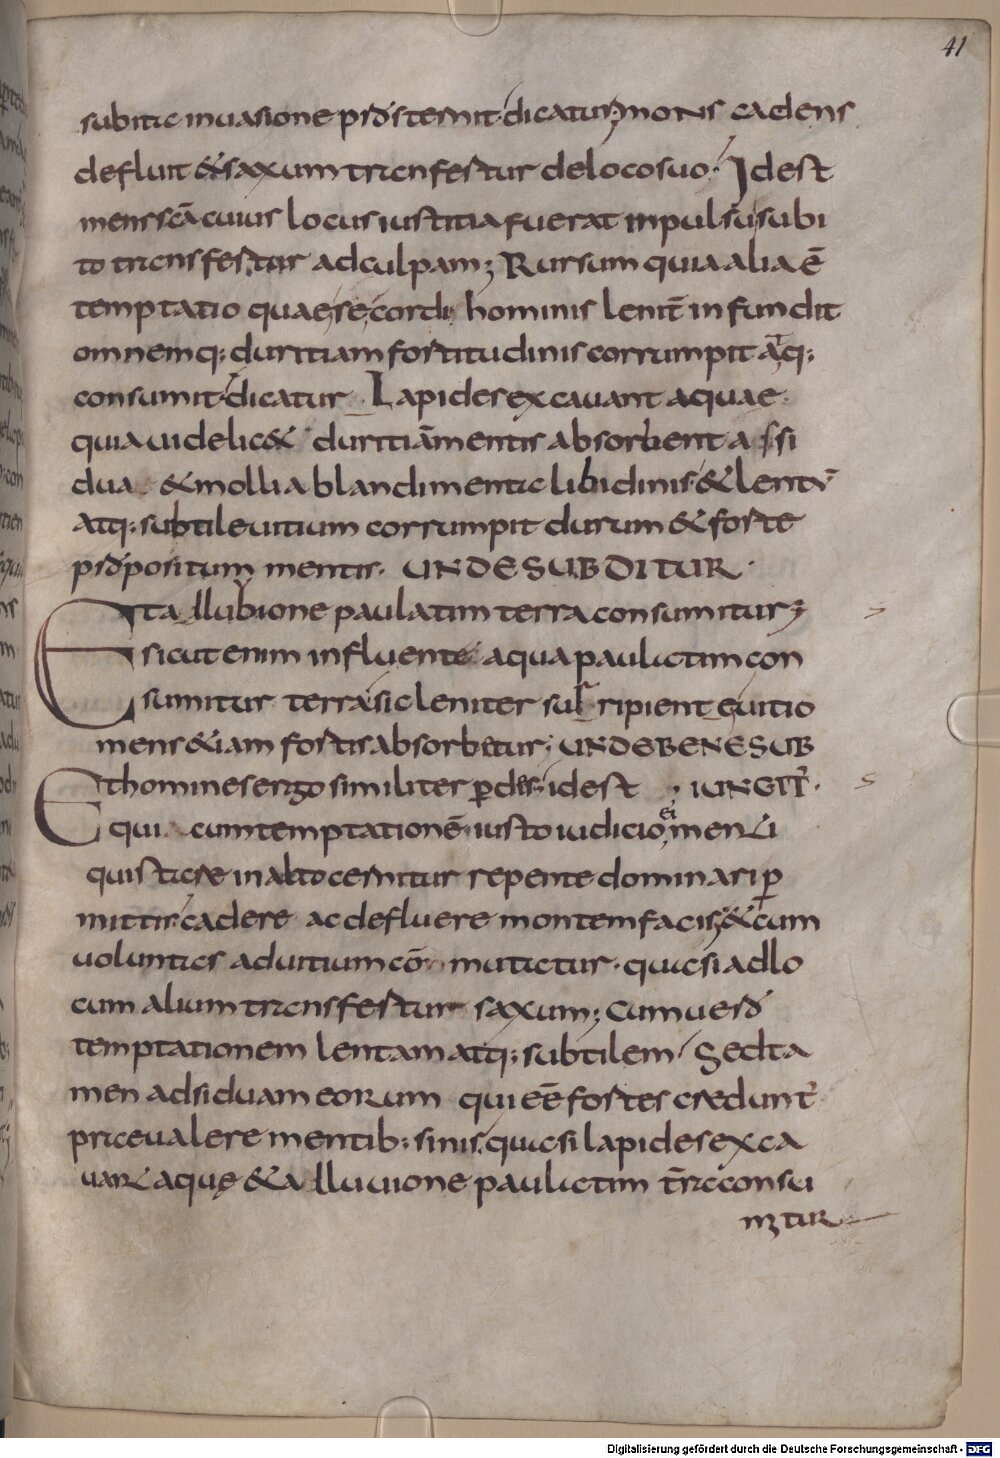 41
subita inuasione prosternit dicatur; mons cadens
defluit & saxum transfertur de loco suo. Idest
mens scā cuius locus iustitia fuerat inpulsu subi
to transfertur ad culpam; Rursum quia alia ē
temptatio quae se cordi hominis lenit̄ infundit
omnemq; duritiam fortitudinis corrumpit atq;
consumit dicatur. Lapides excauant aquae.
quia uidelic& duritiā mentis absorbent assi
dua & mollia blandimenta libidinis & lentū
atq; subtile uitium corrumpit durum & forte
propositum mentis. UNDE SUBDITUR.
Et allubione paulatim terra consumitur;
sicut enim influente aqua paulatim con
sumitur terra sic leniter subripiente uitio
mens &iam fortis absorbetur; UNDE BENE SUB
Et homines ergo similiter perdes. idest ; IUNGIT̄.
qui cum temptationē iusto iudicio ei menti
quis tare in alto cernitur repente dominari p̄
mittis cadere ac defluere montem facis; & cum
voluntas ad uitium cōmutatur. quasi ad lo
cum alium transfertur saxum; Cum uero
temptationem lentam atq; subtilem sed ta
men adsiduam eorum qui eē fortes credunt̄
praeualere mentib; sinis. quasi lapides exca
uant aquę & alluuione paulatim t̄ra consu
mitur
Digitalisierung gefördert durch die Deutsche Forschungsgemeinschaft - DFG